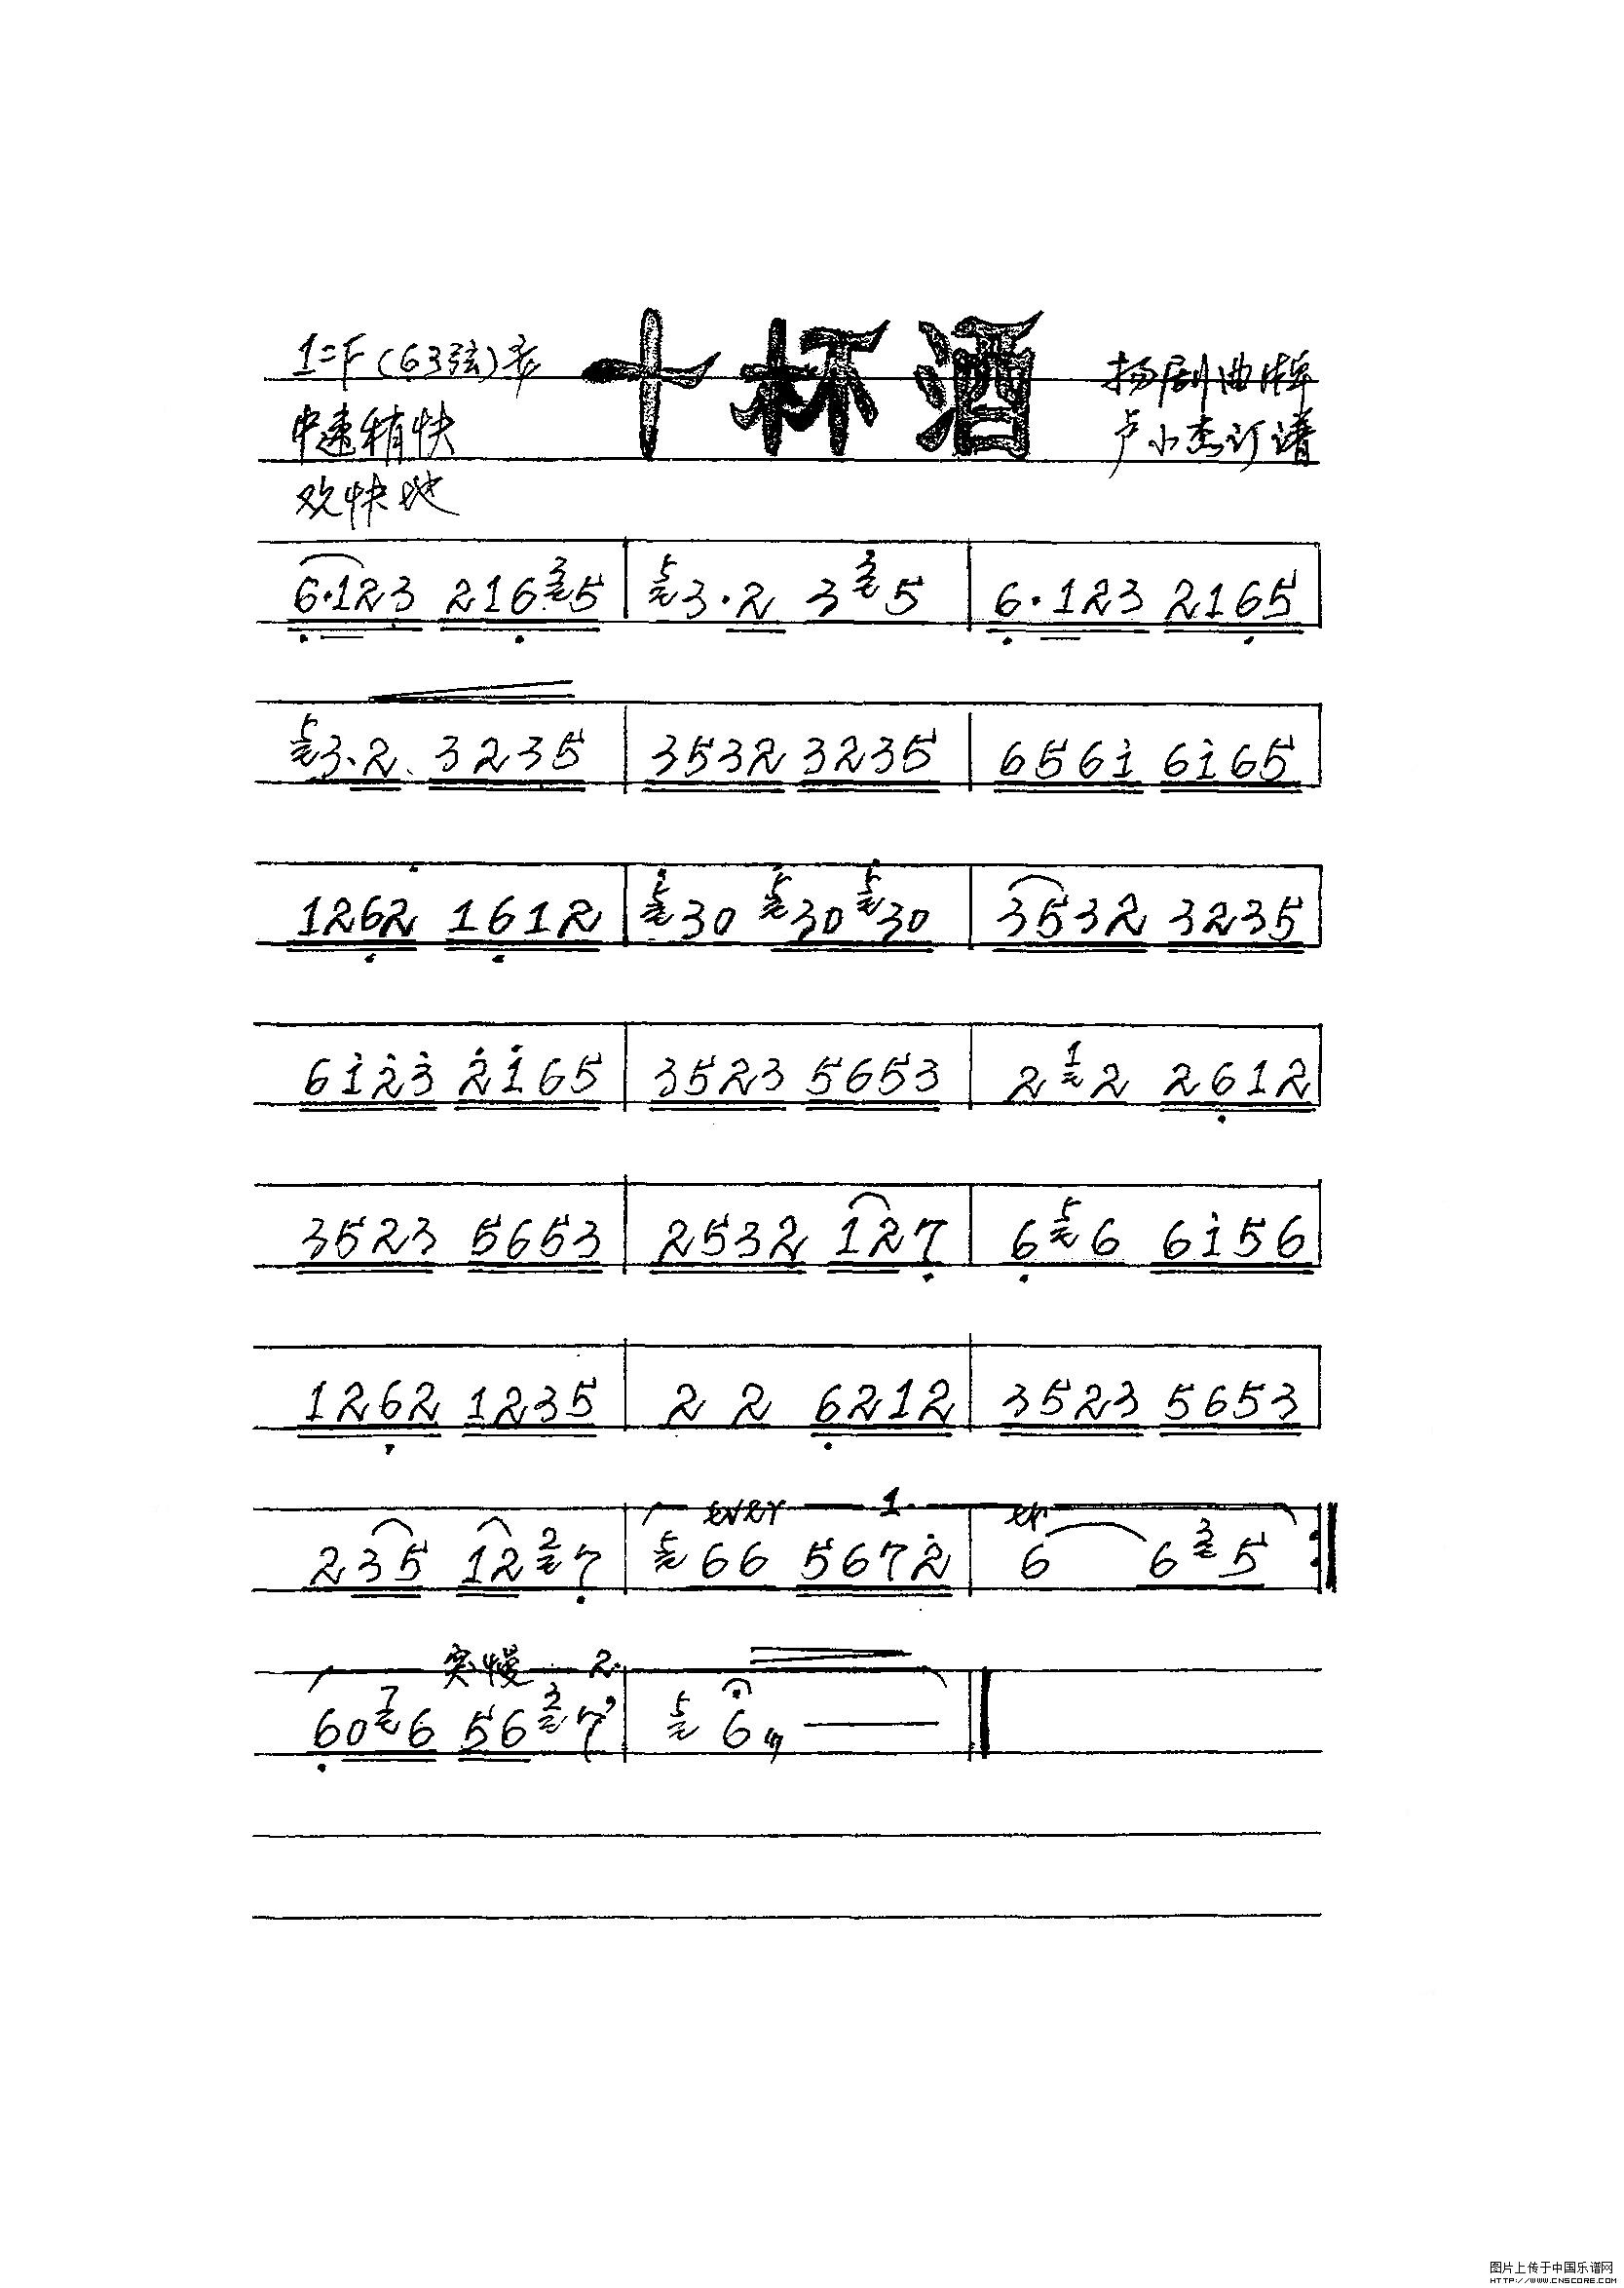 十杯酒
1=F (63弦) 2/4
扬剧曲牌
中速稍快
卢小杰订谱
欢快地
6·123 21635 | 53·2 335 | 6·123 2165
53·2 3235 | 3532 3235 | 6561 6165
1262 1612 | 530 530 530 | 3532 3235
6123 2165 | 3523 5653 | 212 2612
3523 5653 | 2532 127 | 656 6156
1262 1235 | 2 2 6212 | 3523 5653
1.
235 1227 | 566 5672 | 6 635
突慢 2.
6076 5637 | 56 —
图片上传于中国乐谱网
HTTP://WWW.CNSCORE.COM